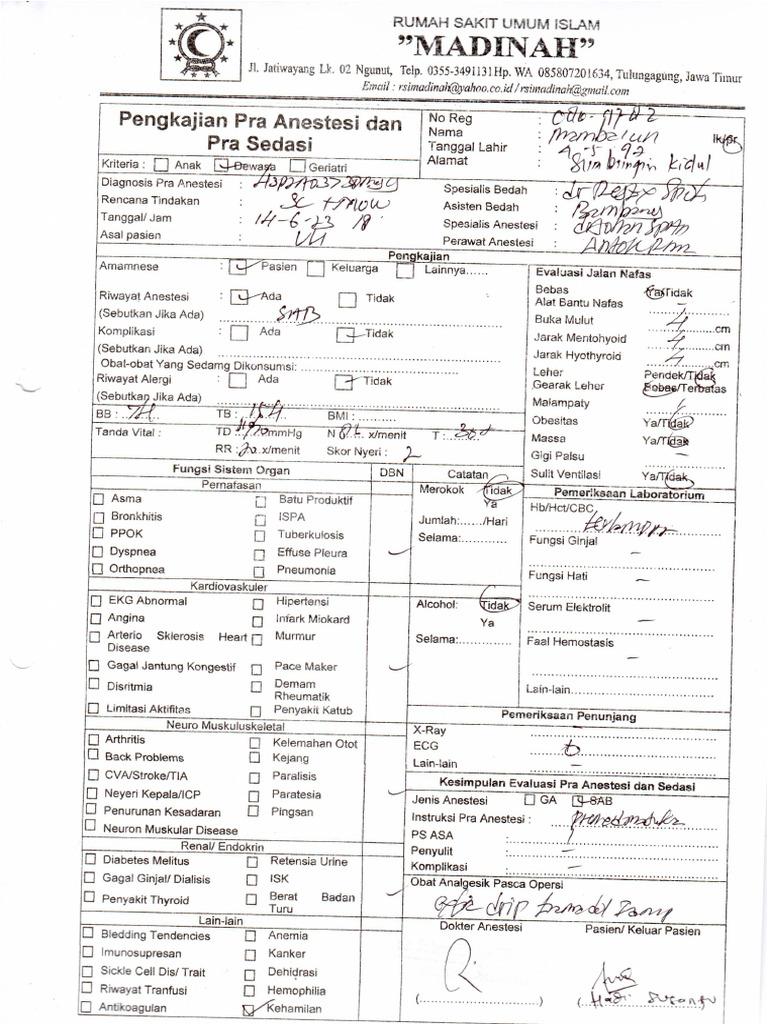 RUMAH SAKIT UMUM ISLAM
"MADINAH"
Jl. Jatiwayang Lk. 02 Ngunut, Telp. 0355-3491131Hp. WA 085807201634, Tulungagung, Jawa Timur
Email : rsimadinah@yahoo.co.id / rsimadinah@gmail.com
Pengkajian Pra Anestesi dan
Pra Sedasi
Kriteria : Anak Dewasa Geriatri
No Reg :
Nama :
Tanggal Lahir : lk/pr
Alamat : Sumberingin Kidul
Diagnosis Pra Anestesi :
Rencana Tindakan : SC
Tanggal/ Jam : 14-6-23
Asal pasien :
Spesialis Bedah : dr
Asisten Bedah : Bambang
Spesialis Anestesi :
Perawat Anestesi :
Pengkajian
Amamnese : Pasien Keluarga Lainnya......
Riwayat Anestesi : Ada Tidak
(Sebutkan Jika Ada) SAB
Komplikasi : Ada Tidak
(Sebutkan Jika Ada)
Obat-obat Yang Sedamg Dikonsumsi:
Riwayat Alergi : Ada Tidak
(Sebutkan Jika Ada)
BB : TB : 154 BMI :
Tanda Vital : TD mmHg N x/menit T :
RR : 20 x/menit Skor Nyeri : 2
Evaluasi Jalan Nafas
Bebas Ya/Tidak
Alat Bantu Nafas -
Buka Mulut 4 cm
Jarak Mentohyoid 4 cm
Jarak Hyothyroid 4 cm
Leher Pendek/Tidak
Gearak Leher Bebas/Terbatas
Malampaty
Obesitas Ya/Tidak
Massa Ya/Tidak
Gigi Palsu -
Sulit Ventilasi Ya/Tidak
Fungsi Sistem Organ DBN Catatan
Pernafasan
Asma Batu Produktif
Bronkhitis ISPA
PPOK Tuberkulosis
Dyspnea Effuse Pleura
Orthopnea Pneumonia
Merokok Tidak
Ya
Jumlah:....../Hari
Selama:
Pemeriksaan Laboratorium
Hb/Hct/CBC: terlampir
Fungsi Ginjal -
Fungsi Hati -
Serum Elektrolit -
Faal Hemostasis -
Lain-lain
Kardiovaskuler
EKG Abnormal Hipertensi
Angina Infark Miokard
Arterio Sklerosis Heart Disease Murmur
Gagal Jantung Kongestif Pace Maker
Disritmia Demam Rheumatik
Limitasi Aktifitas Penyakit Katub
Alcohol: Tidak
Ya
Selama:
Neuro Muskuluskeletal
Arthritis Kelemahan Otot
Back Problems Kejang
CVA/Stroke/TIA Paralisis
Neyeri Kepala/ICP Paratesia
Penurunan Kesadaran Pingsan
Neuron Muskular Disease
Pemeriksaan Penunjang
X-Ray
ECG
Lain-lain -
Kesimpulan Evaluasi Pra Anestesi dan Sedasi
Jenis Anestesi GA SAB
Instruksi Pra Anestesi :
PS ASA :
Penyulit : -
Komplikasi : -
Renal/ Endokrin
Diabetes Melitus Retensia Urine
Gagal Ginjal/ Dialisis ISK
Penyakit Thyroid Berat Badan Turu
Obat Analgesik Pasca Opersi
drip tramadol
Lain-lain
Bledding Tendencies Anemia
Imunosupresan Kanker
Sickle Cell Dis/ Trait Dehidrasi
Riwayat Tranfusi Hemophilia
Antikoagulan Kehamilan
Dokter Anestesi Pasien/ Keluar Pasien
(....................) (Hadi)